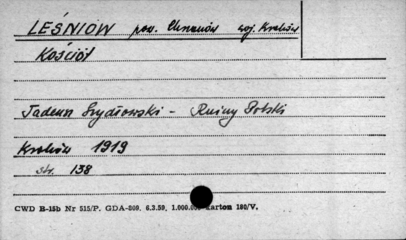 LEŚNIOW pow. Chrzanów woj. Kraków
Kościół
Tadeusz Szydłowski - Ruiny Polski
Kraków 1919
str. 138
CWD B-15b Nr 515/P. GDA-809. 6.3.59. 1.000.000 karton 180/V.